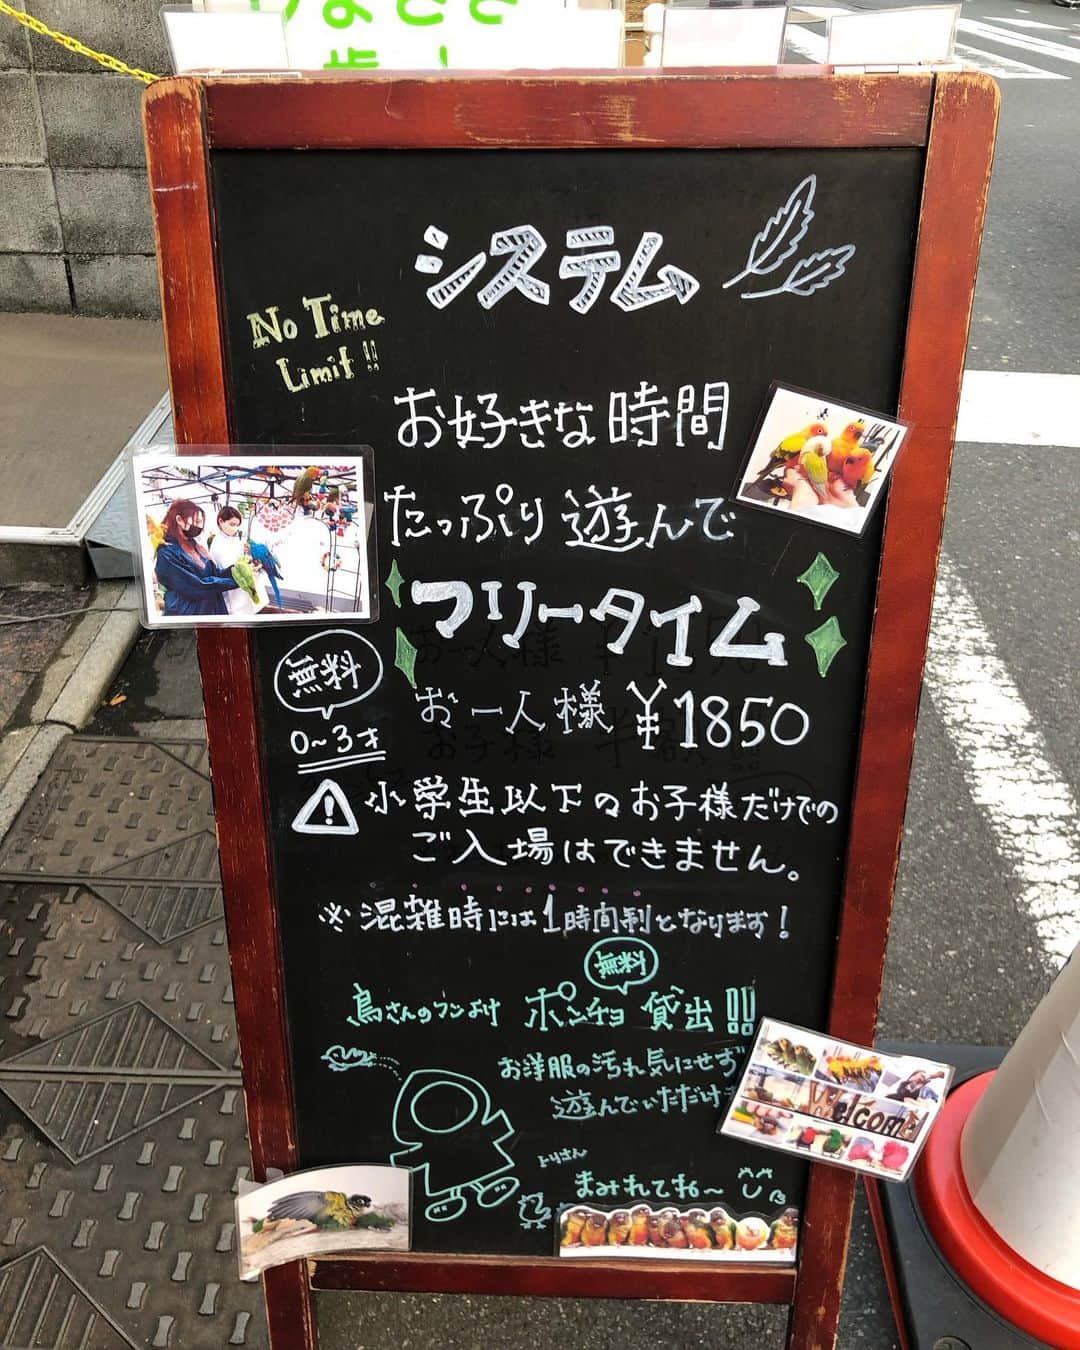 システム
No Time
Limit!!
お好きな時間
たっぷり遊んで
フリータイム
お一人様 ¥1850
無料
0~3才
小学生以下のお子様だけでの
ご入場はできません。
※混雑時には1時間制となります!
無料
鳥さんのフンよけ ポンチョ貸出!!
お洋服の汚れ気にせず
遊んでいただけ
とりさん
まみれてね~
Welcome